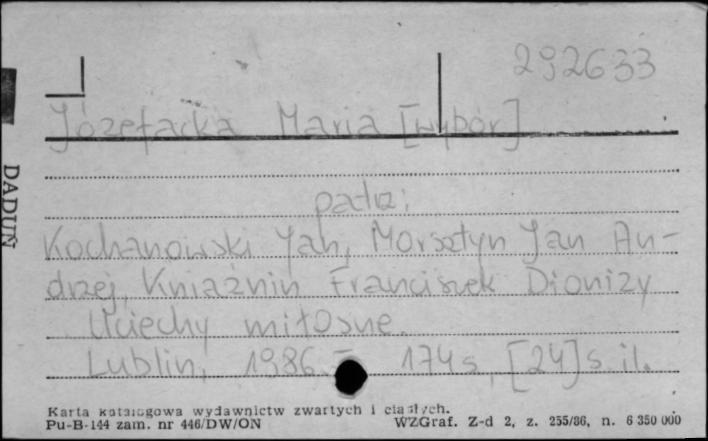 292633
Józefacka Maria [wybór]
patrz:
Kochanowski Jan, Morsztyn Jan An-
drzej, Kniaźnin Franciszek Dionizy
Uciechy miłosne.
Lublin, 1986. - 174 s, [24] s. il.
Karta katalogowa wydawnictw zwartych i ciągłych.
Pu-B-144 zam. nr 446/DW/ON
WZGraf. Z-d 2, z. 255/86, n. 6 350 000
DADUŃ